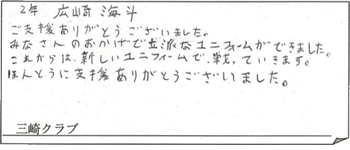 2年 広崎海斗
ご支援ありがとうございました。
みなさんのおかげで立派なユニフォームができました。
これからは、新しいユニフォームで、戦っていきます。
ほんとうに支援ありがとうございました。
三崎クラブ